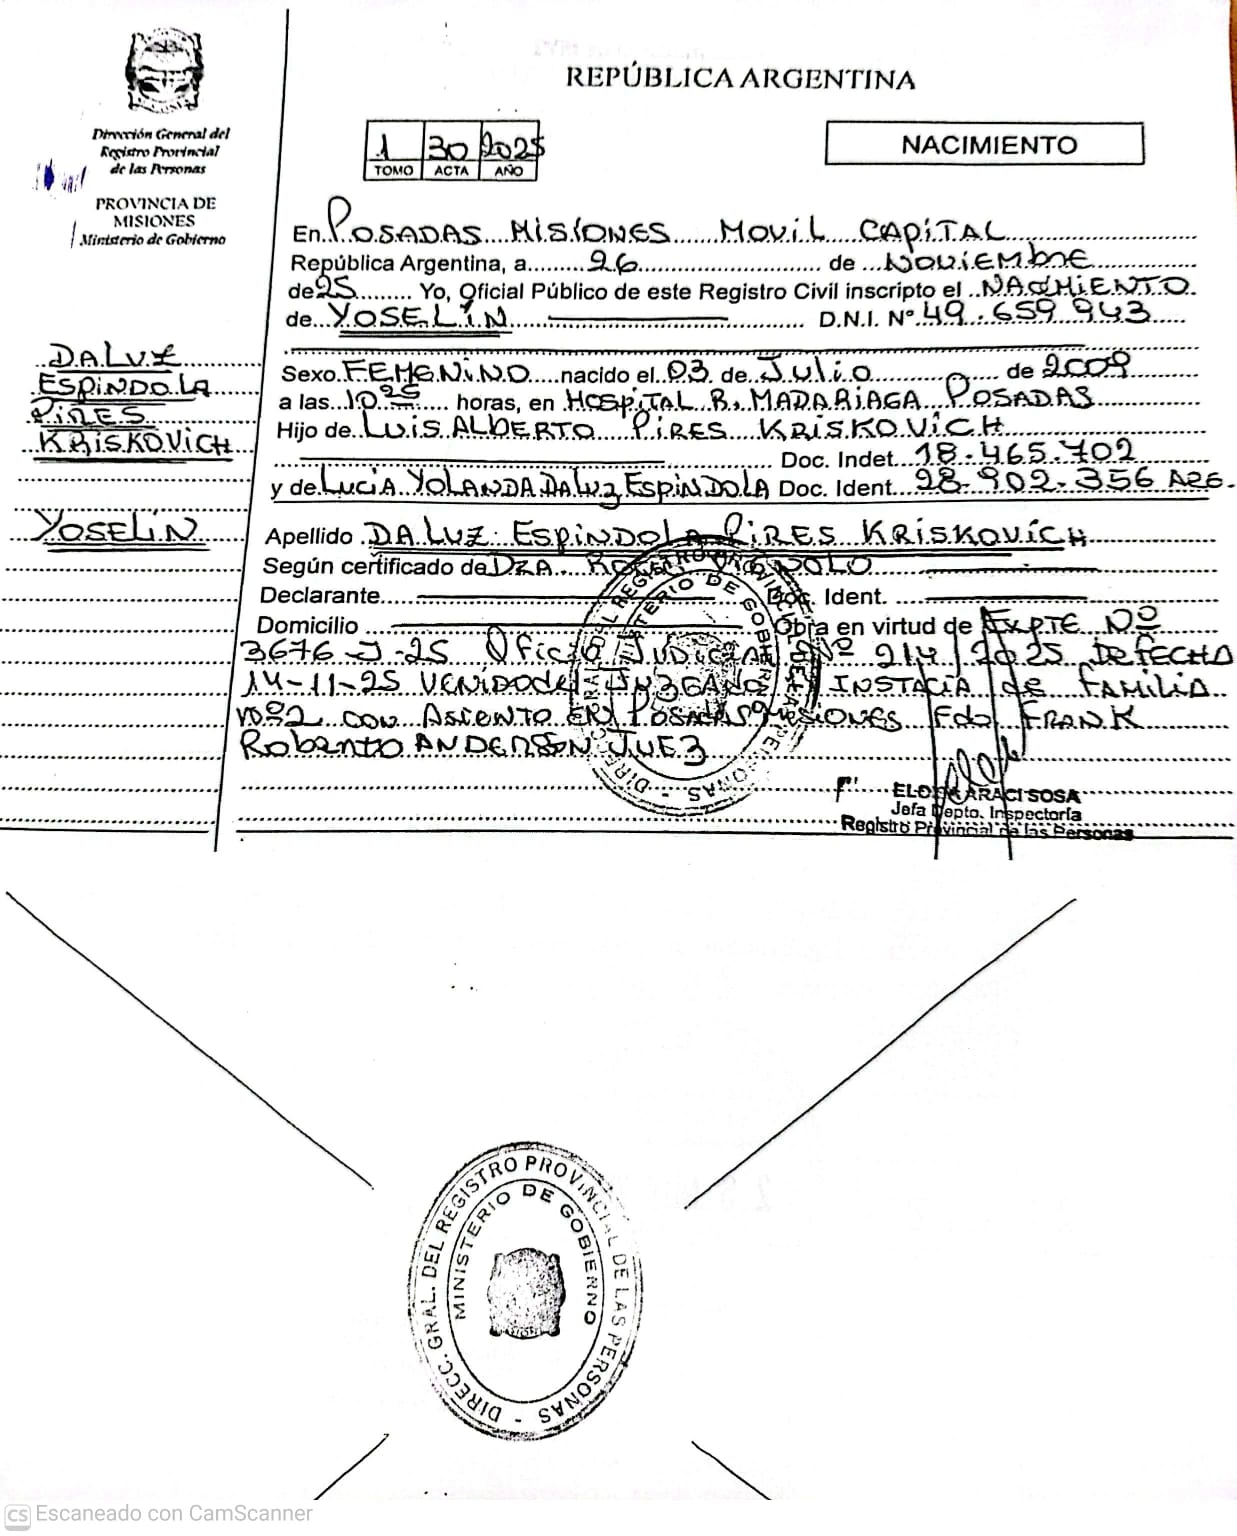 REPÚBLICA ARGENTINA
Dirección General del
Registro Provincial
de las Personas
PROVINCIA DE
MISIONES
Ministerio de Gobierno
1 30 2025
TOMO ACTA AÑO
NACIMIENTO
En POSADAS MISIONES MOVIL CAPITAL
República Argentina, a 26 de NOVIEMBRE
de 25 Yo, Oficial Público de este Registro Civil inscripto el NACIMIENTO
de YOSELIN D.N.I. Nº 49.659 943
DALUZ
ESPINDOLA
PIRES
KRISKOVICH
YOSELIN
Sexo FEMENINO nacido el 03 de Julio de 2009
a las 10 25 horas, en HOSPITAL R. MADARIAGA POSADAS
Hijo de LUIS ALBERTO PIRES KRISKOVICH
Doc. Indet. 18.465.702
y de LUCIA YOLANDA DALUZ ESPINDOLA Doc. Ident. 28.902.356 ARG.
Apellido DALUZ ESPINDOLA PIRES KRISKOVICH
Según certificado de DRA.
Declarante Doc. Ident.
Domicilio Obra en virtud de EXPTE Nº
3676 J-25 Oficio JUDICIAL Nº 214/2025 DE FECHA
14-11-25 VENIDO del JUZGADO INSTACIA de FAMILIA
Nº2 CON ASIENTO EN POSADAS MISIONES Fdo. FRANK
Roberto ANDERSSON JUEZ
F' ARACI SOSA
Jefa Depto. Inspectoría
Registro Provincial de las Personas
DIRECC. GRAL. DEL REGISTRO PROVINCIAL DE LAS PERSONAS -
MINISTERIO DE GOBIERNO
DIRECC. GRAL. DEL REGISTRO PROVINCIAL DE LAS PERSONAS -
MINISTERIO DE GOBIERNO
CS Escaneado con CamScanner